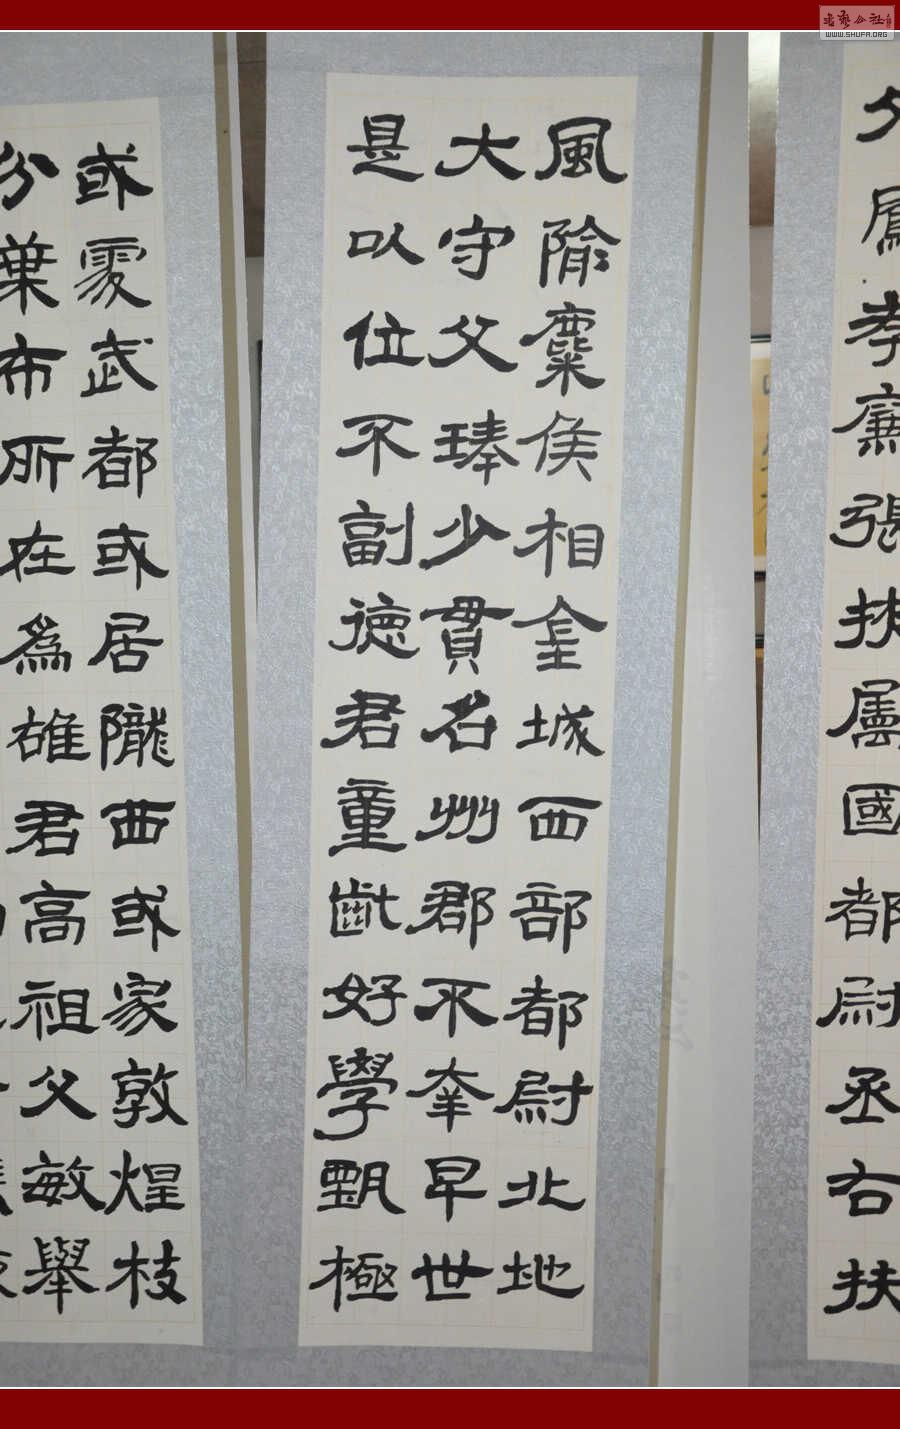 書藝公社
WWW.SHUFA.ORG
父鳳孝廉張掖屬國都尉丞右扶
風隃麋侯相金城西部都尉北地
大守父琫少貫名州郡不幸早世
是以位不副德君童齔好學甄極
或處武都或居隴西或家敦煌枝
分葉布所在為雄君高祖父敏舉